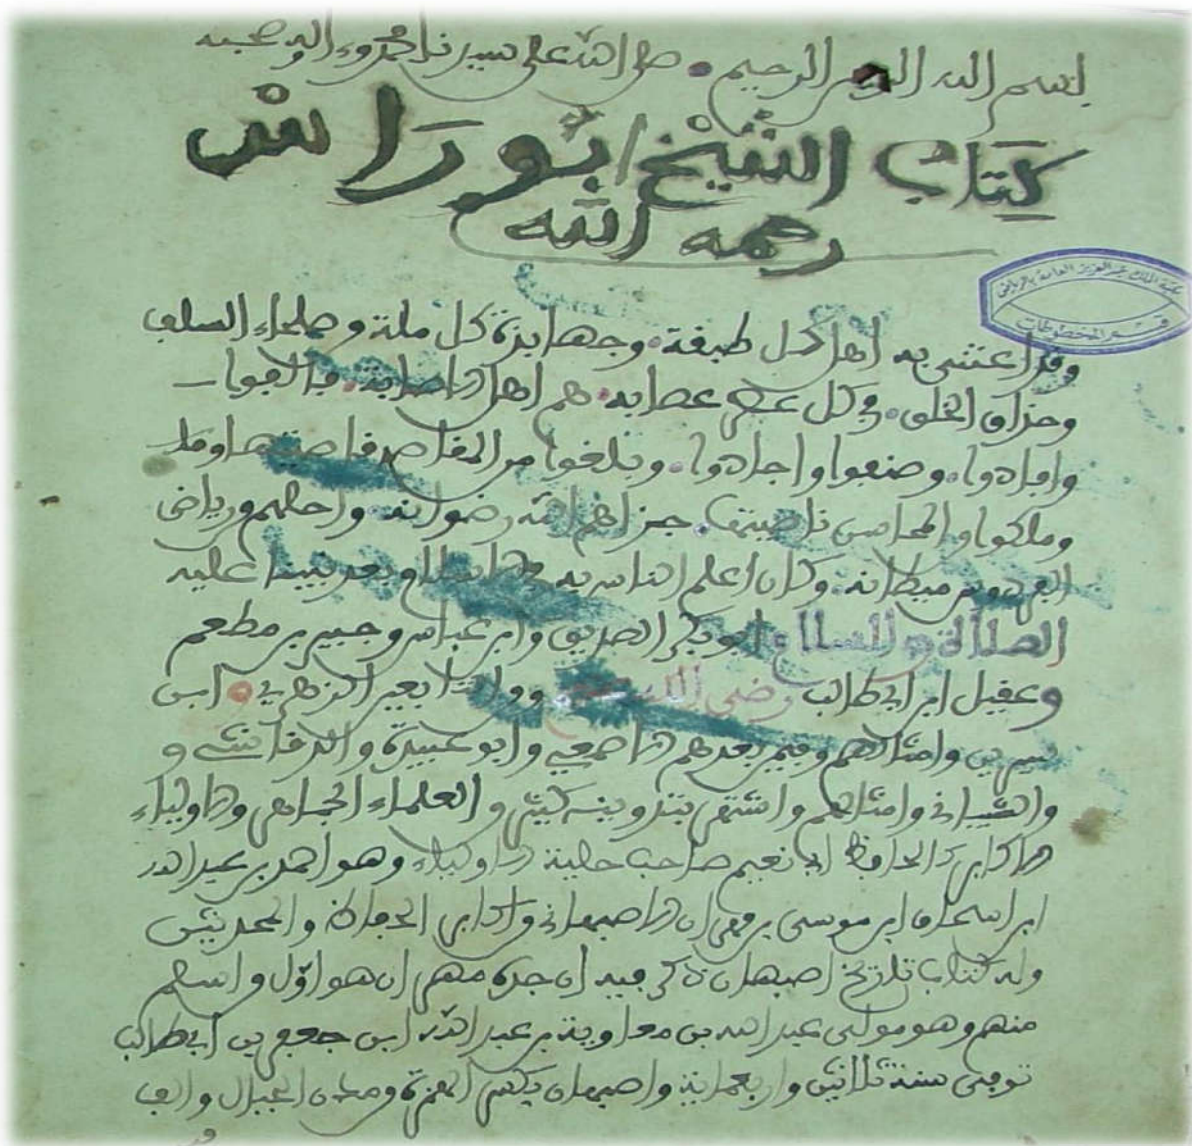 بسم الله الرحمن الرحيم • صلى الله على سيدنا محمد وءاله وصحبه
كِتَابُ الشَّيْخ ابُو رَاسْ
رحمه الله
مكتبة الملك عبد العزيز العامة بالرياض
قسم المخطوطات
وقد اعتنى به اهل كل طبقة • وجهابذة كل ملة وصلحاء السلف
وحذاق الخلف • في كل عصر عصابه • هم اهل الاصابة •
وافادوا • وصنفوا واجادوا • وبلغوا من المقاصد قاصيتها
وملكوا المحاسن ناصيتها • جزاهم الله رضوانه • واحلهم رياض
وكان اعلم الناس به بعد نبينا عليه
الصلاة والسلام ابو بكر الصديق وابن عباس وجبير بن مطعم
وعقيل ابن ابي طالب رضي الله عنهم ومن التابعين الزهري • ابن
سيرين وامثالهم وفيمن بعدهم الاصمعي وابو عبيدة والرقاشي و
والشيباني وامثالهم واشتهر بتدوينه كثير العلماء الجماهر والاولياء
الاكابر كالحافظ ابي نعيم صاحب حلية الاولياء وهو احمد بن عبد الله
ابن اسحاق ابن موسى بن مهران الاصبهاني واكابر الحفاظ والمحدثين
وله كتاب تاريخ اصبهان ذكر فيه ان جده مهران هو اول من اسلم
منهم وهو مولى عبد الله بن معاوية بن عبد الله ابن جعفر بن ابي طالب
توفي سنة ثلاثين واربعماية واصبهان بكسر الهمزة الجبال